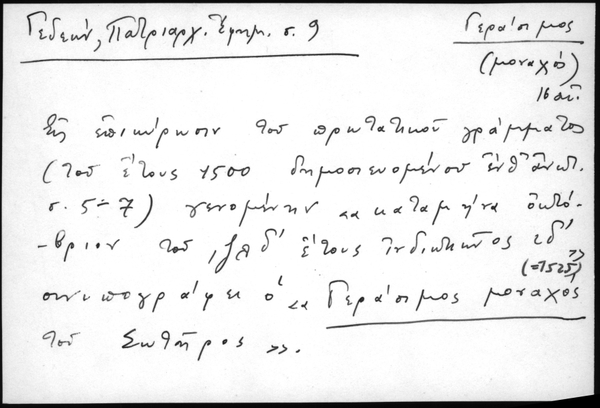 Γεδεών, Πατριαρχ. Ἐφημ. σ. 9
Γεράσιμος
(μοναχός)
16 αἰ.
Εἰς ἐπικύρωσιν τοῦ πρωτατικοῦ γράμματος
(τοῦ ἔτους 1500 δημοσιευομένου ἔνθ' ἀνωτ.
σ. 5-7) γενομένην «κατὰ μῆνα ὀκτώ-
-βριον τοῦ ͵ζλδ' ἔτους ἰνδικτιῶνος ιδ'»
(=1525)
συνυπογράφει ὁ «Γεράσιμος μοναχός
τοῦ Σωτῆρος».